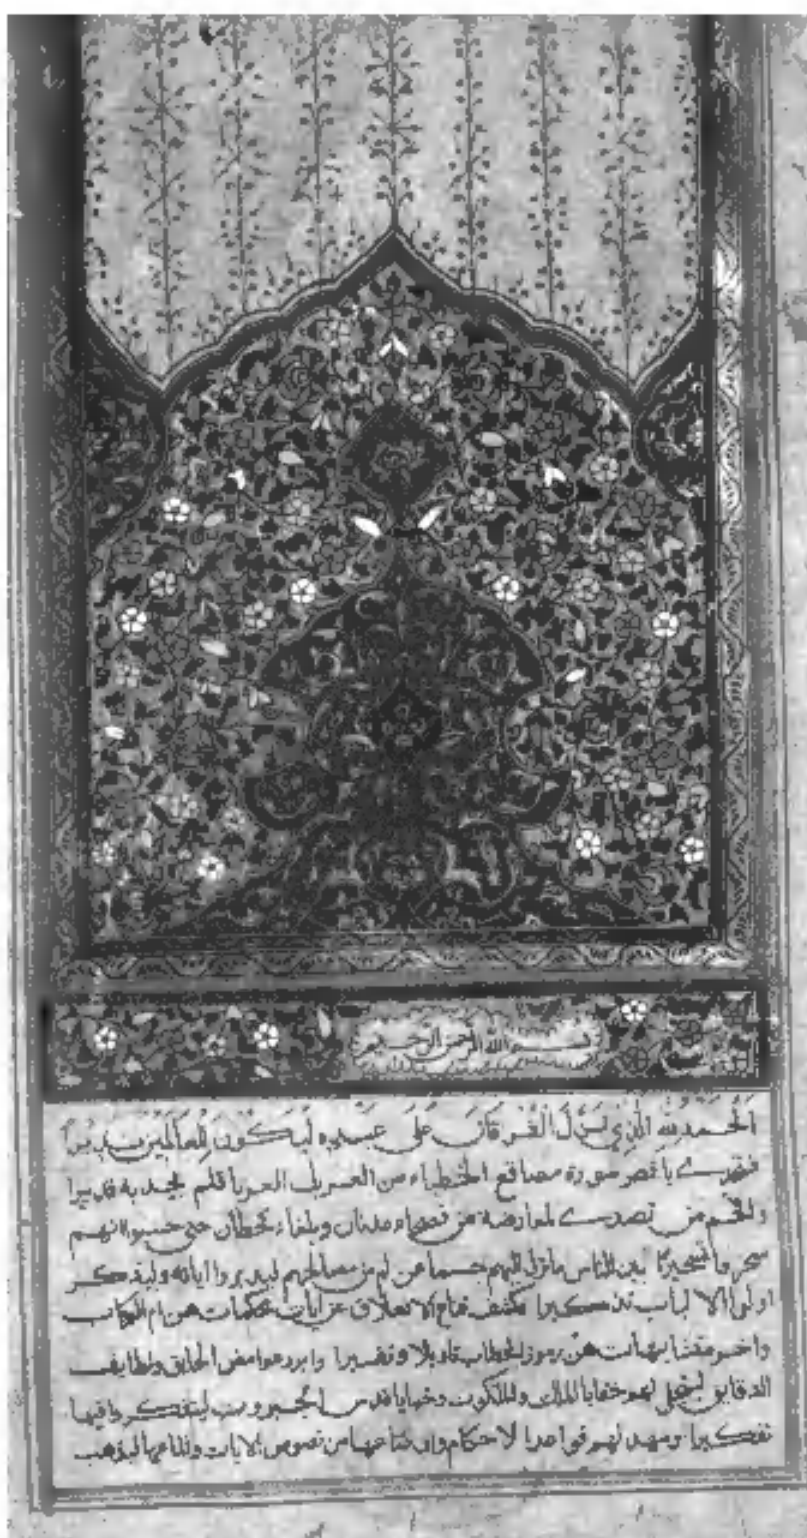 بسم الله الرحمن الرحيم
الحمد لله الذي نزل الفرقان على عبده ليكون للعالمين نذيرا
فتحدى باقصر سورة مصاقع الخطباء من العرب العرباء فلم يجد به قديرا
وافحم من تصدى لمعارضته من فصحاء عدنان وبلغاء قحطان حتى حسبوا انهم
سحروا تسحيرا ثم بين للناس ما نزل اليهم حسبما عن لهم من مصالحهم ليدبروا اياته وليتذكر
اولوا الالباب تذكيرا فكشف قناع الانغلاق عن ايات محكمات هن ام الكتاب
واخر متشابهات هن رموز الخطاب تاويلا وتفسيرا وابرز غوامض الحقايق ولطايف
الدقايق ليتجلى لهم خفايا الملك والملكوت وخبايا قدس الجبروت ليتفكروا فيها
تفكيرا ومهد لهم قواعد الاحكام واوضاعها من نصوص الايات والماعها ليذهب